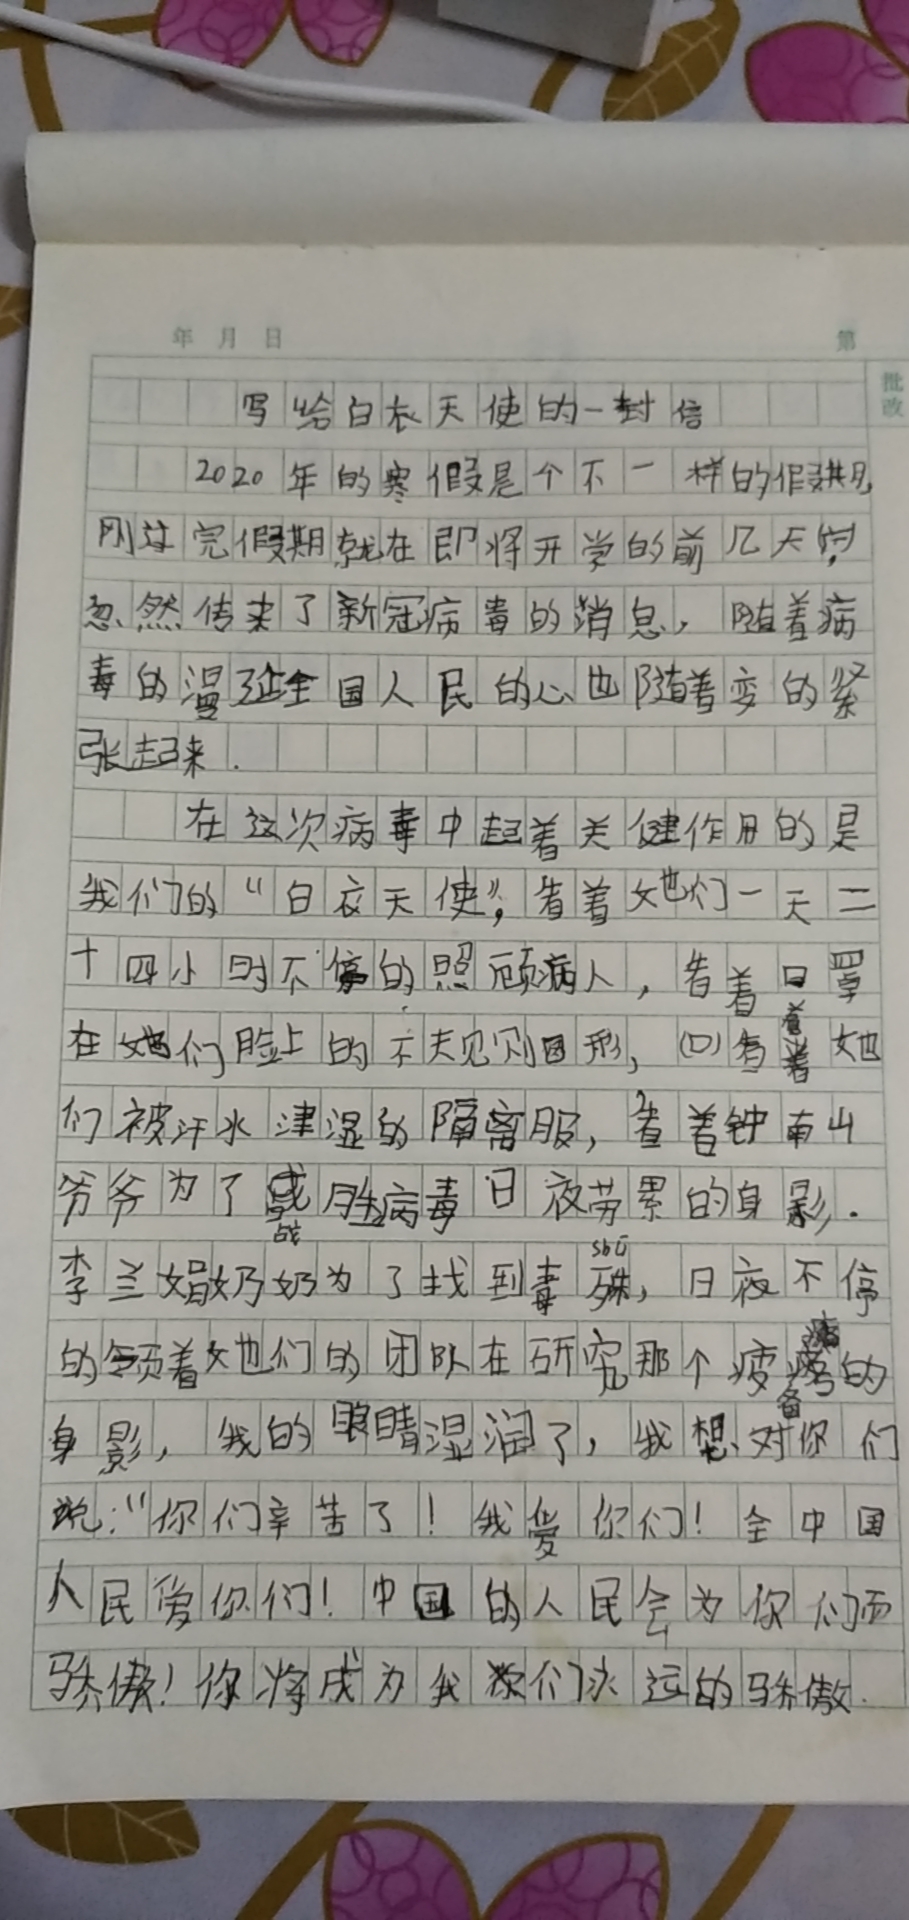 年 月 日 第
批改
写给白衣天使的一封信
2020年的寒假是个不一样的假期
刚过完假期就在即将开学的前几天
忽然传来了新冠病毒的消息，随着病
毒的漫延全国人民的心也随着变的紧
张起来.
在这次病毒中起着关健作用的是
我们的“白衣天使”，看着她们一天二
十四小时不停的照顾病人，看着口罩
在她们脸上的不规则图形，看着她
们被汗水津湿的隔离服，看着钟南山
爷爷为了战胜病毒日夜劳累的身影.
李兰娟奶奶为了找到毒殊，日夜不停
的领着她们的团队在研究那个疲惫的
身影，我的眼睛湿润了，我想对你们
说：“你们辛苦了！我爱你们！全中国
人民爱你们！中国的人民会为你们而
骄傲！你将成为我们永远的骄傲.